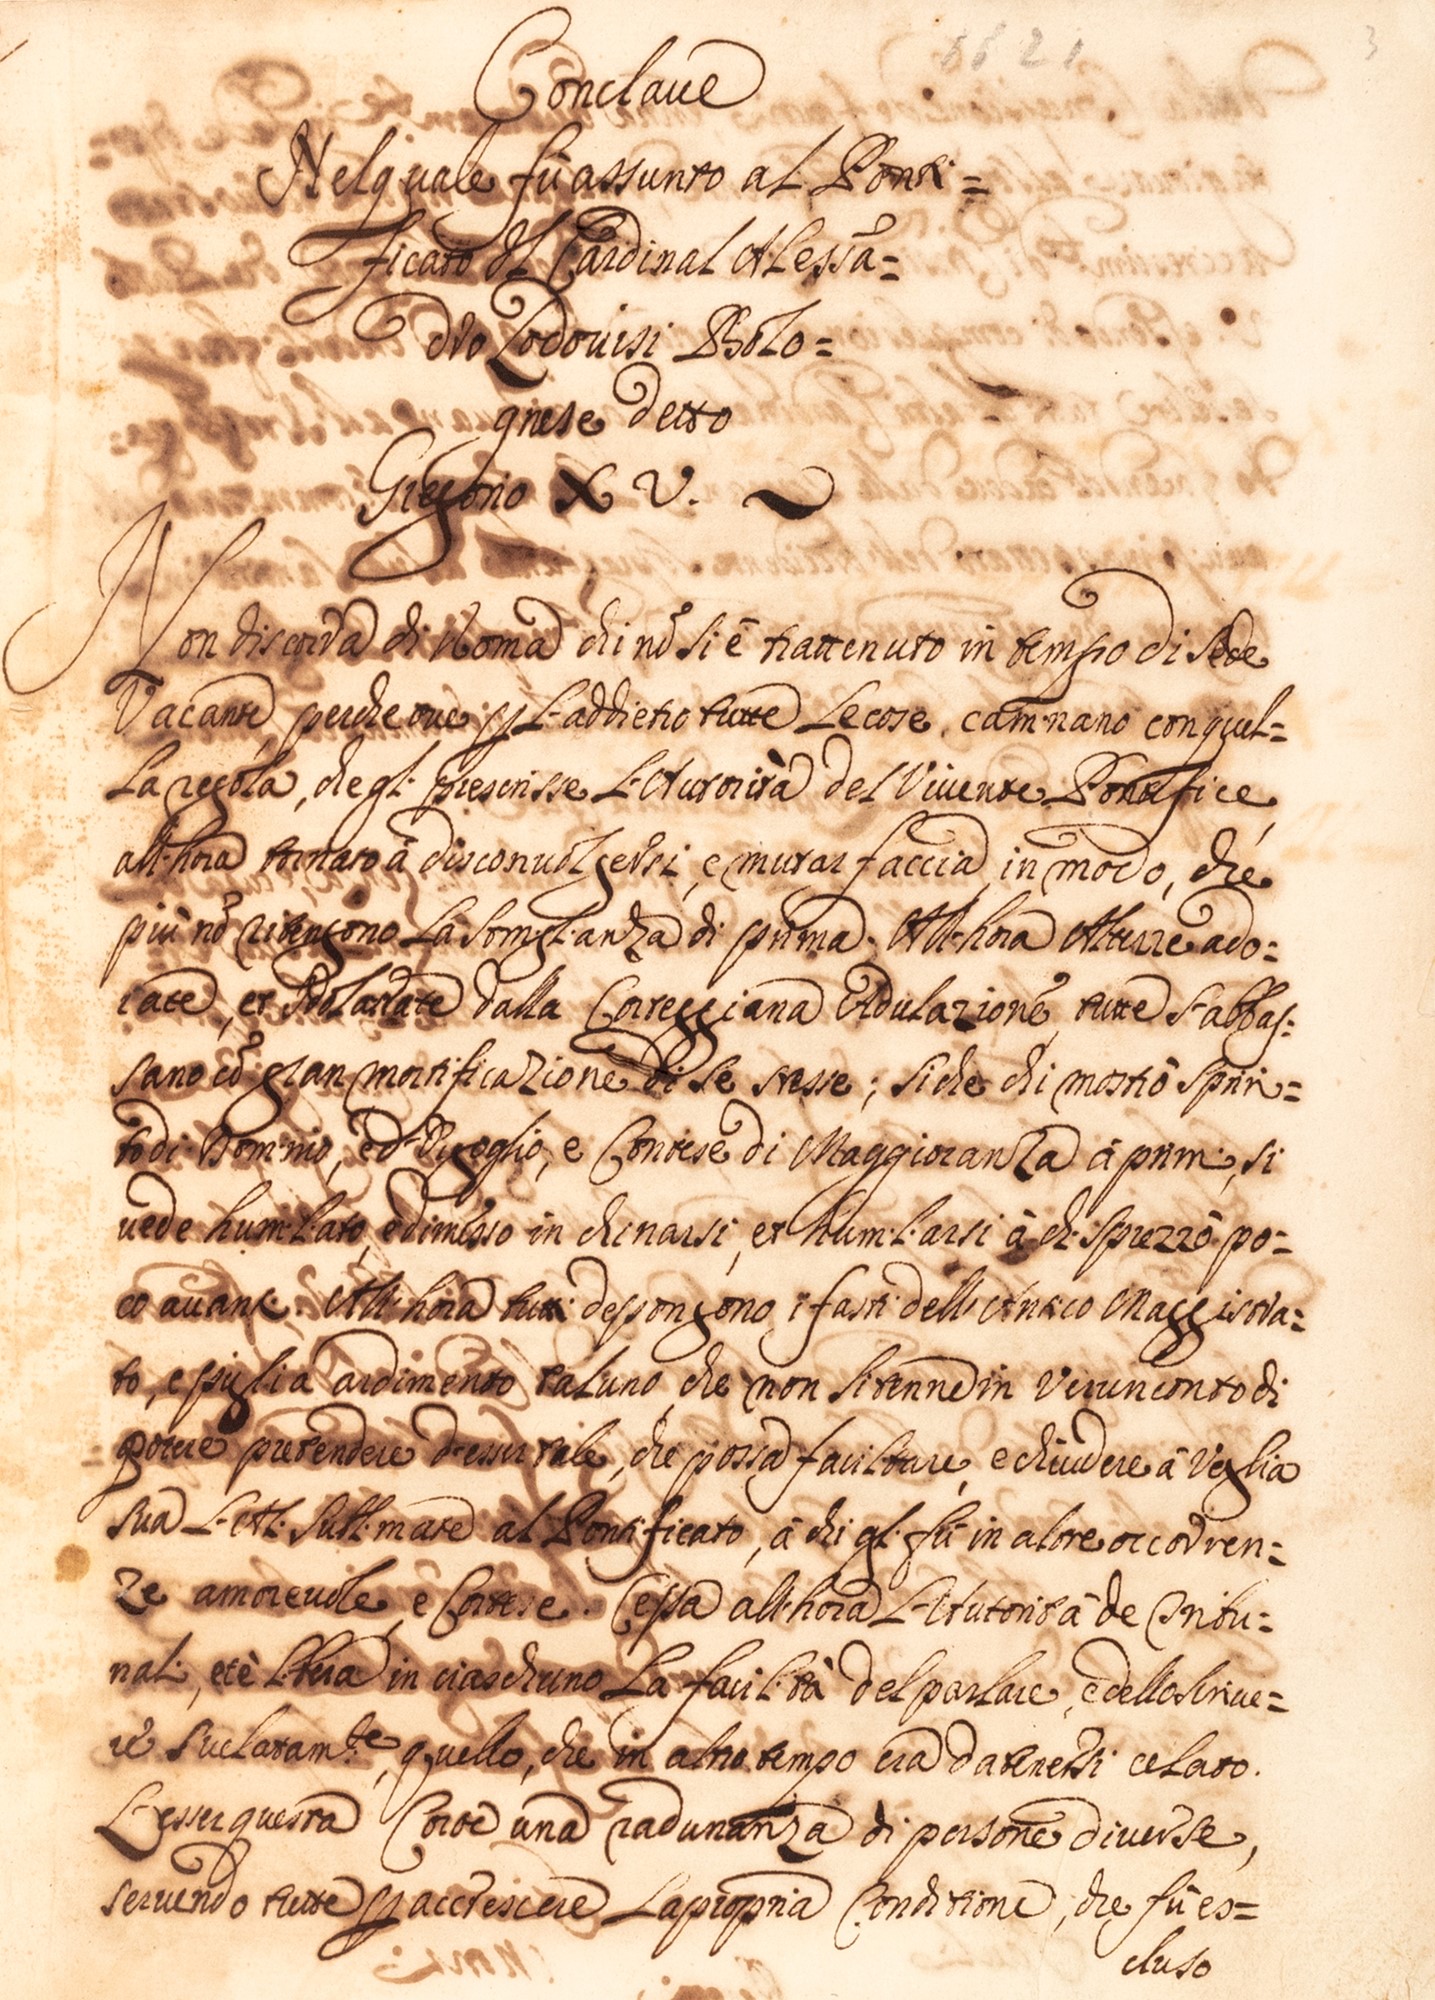 1621
3
Conclaue
Nel quale fù assunto al Ponti=
ficato il Cardinal Alessã=
dro Lodouisi Bolo=
gnese detto
Gregorio XV.
Non discorra di Roma chi nõ si è trattenuto in tempo di Sede
Vacante, perche oue per l'addietro tutte le cose caminano con quel=
la regola, che gli prescrisse l'Autorità del Viuente Pontefice,
all'hora tornato à disconuolgersi, e mutar faccia in modo, che
più nõ ritengono la somiglianza di prima. All'hora Alterre ado=
rate, et Idolatrate dalla Correggiana Adulazione, tutte s'abbas=
sano cõ gran mortificazione di se stesse; si che chi mostrò spiri=
to di Dominio, ed Orgoglio, e Contese di Maggioranza à primi, si
uede humiliato, e dimesso in chinarsi, et humiliarsi à chi sprezzò po=
co auanti. All'hora tutti depongono i fasti dell'Antico Maggistra=
to, e piglia ardimento taluno, che non si tenne in verun conto di
potere pretendere d'esser tale, che possa facilitare, e chiudere à Voglia
sua l'Alt. sublimare al Pontificato, à chi gli fù in altre occorren=
ze amoreuole, e Cortese. Cessa all'hora l'Autorità de Tribu=
nali, et è libera in ciascheduno la facilità del parlare, e dello scriue=
re suelatam.te, quello, che in altro tempo era da tenersi celato.
L'esser questa Corte una radunanza di persone diuerse,
seruendo tutte per accrescere la propria Conditione, che fù es=
cluso